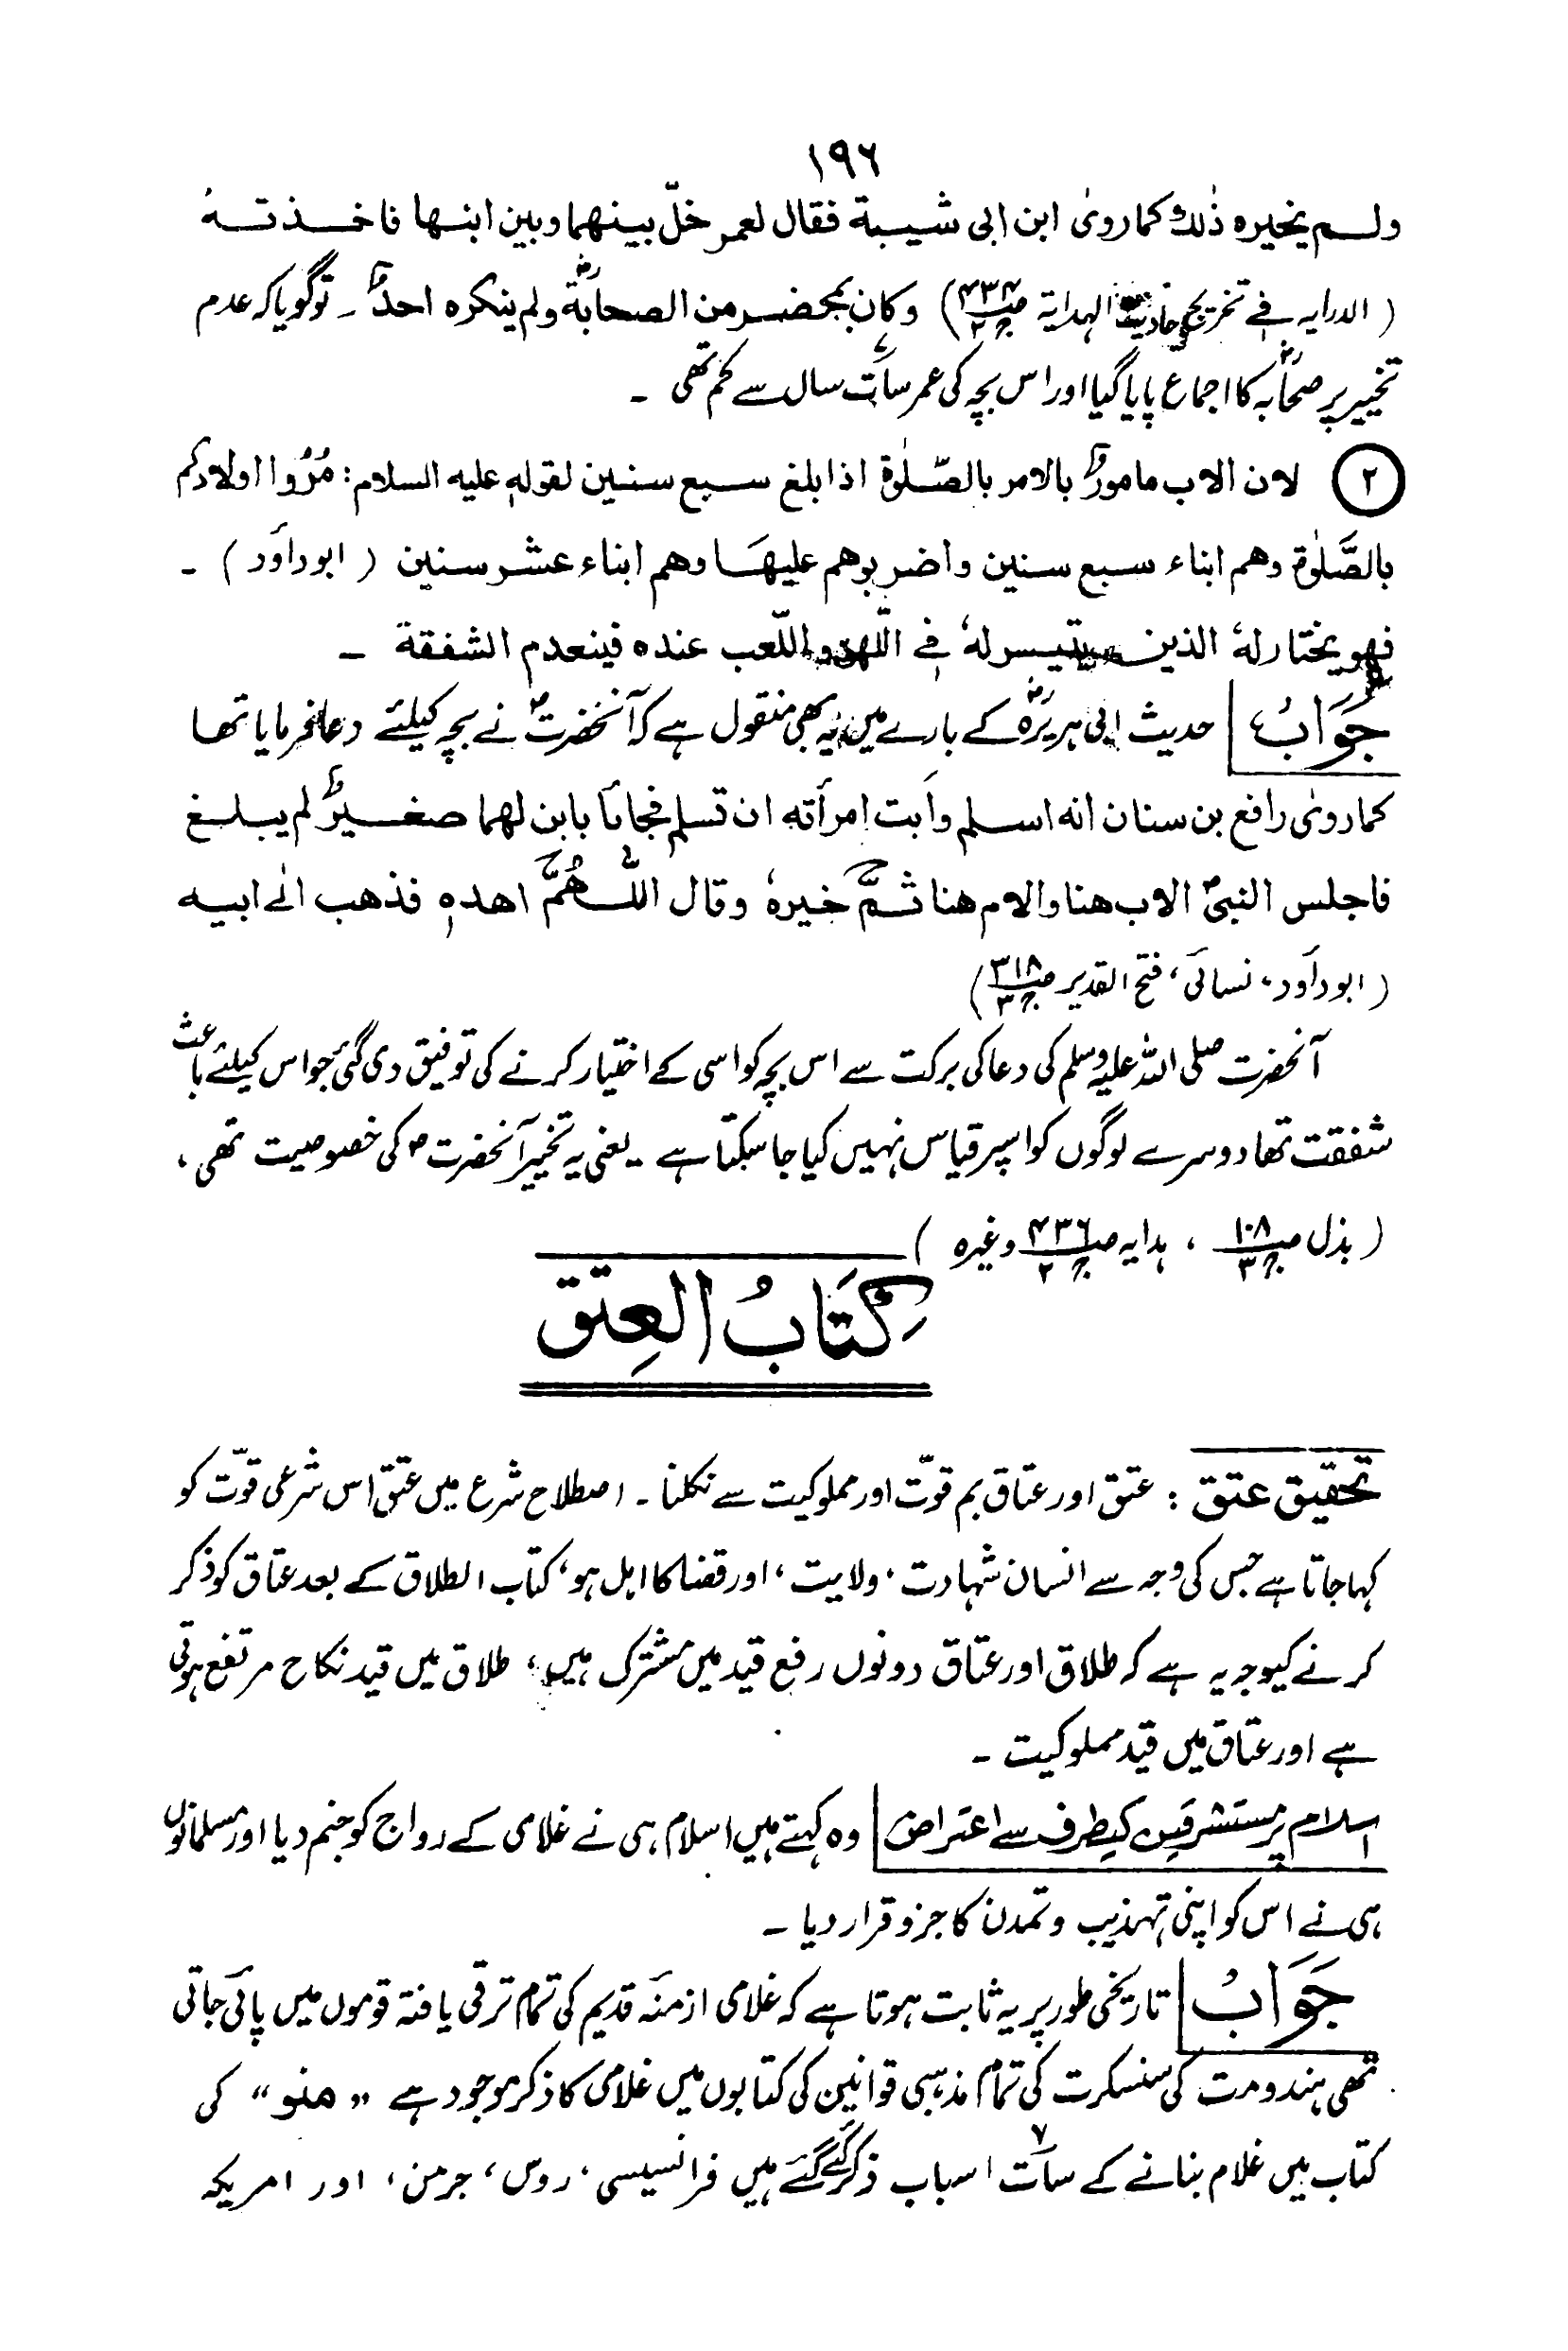 ۱۹۶
ولم یخیره ذلك كما روىٰ ابن ابی شیبة فقال لعمر خلّ بینهما وبین ابنها فاخذته
( الدرایه فی تخریج احادیث الهدایة ص۴۳۴ ج۲ ) وكان بمحضر من الصحابةؓ ولم ینكره احدٌ ۔ تو گویا کہ عدم
تخییر پر صحابہؓ کا اجماع پایا گیا اور اس بچہ کی عمر سات۷ سال سے کم تھی ۔
(۲) لان الاب مامورٌ بالامر بالصّلوٰة اذا بلغ سبع سنین لقوله علیه السلام : مُرُوا اولادكم
بالصَّلوٰة وهم ابناء سبع سنین واضربوهم علیهَا وهم ابناء عشر سنین ( ابوداؤد ) ۔
فهو یختار لهٗ الذین یتیسر لهٗ فی اللّهو واللّعب عنده فینعدم الشفقة ۔
جَوَابُ | حدیث ابی ہریرہؓ کے بارے میں یہ بھی منقول ہے کہ آنحضرتؐ نے بچہ کیلئے دعا فرمایا تھا
كما روىٰ رافع بن سنان انه اسلم وأبت امرأته ان تسلم فجاءَا بابن لهما صغیرٌ لم یبلغ
فاجلس النبیؐ الاب هنا والام هنا ثمَّ خیرهٗ وقال اللّٰهُمَّ اهدهٖ فذهب الیٰ ابیه
( ابوداؤد ، نسائی ، فتح القدیر ص۳۱۸ ج۳ )
آنحضرت صلی اللہ علیہ وسلم کی دعا کی برکت سے اس بچہ کو اسی کے اختیار کرنے کی توفیق دی گئی جو اس کیلئے باعث
شفقت تھا دوسرے لوگوں کو اسپر قیاس نہیں کیا جا سکتا ہے ۔ یعنی یہ تخییر آنحضرتؐ کی خصوصیت تھی ،
( بذل ص۱۰۸ ج۳ ، ہدایہ ص۴۳۶ ج۲ وغیرہ )
كِتَابُ العِتق
تحقیق عتق : عتق اور عتاق بم قوّت اور مملوکیت سے نکلنا ۔ اصطلاح شرع میں عتق اس شرعی قوّت کو
کہا جاتا ہے جس کی وجہ سے انسان شہادت ، ولایت ، اور قضا کا اہل ہو ، کتاب الطلاق کے بعد عتاق کو ذکر
کرنے کیوجہ یہ ہے کہ طلاق اور عتاق دونوں رفع قید میں مشترک ہیں ، طلاق میں قید نکاح مرتفع ہوتی
ہے اور عتاق میں قید مملوکیت ۔
اسلام پر مستشرقین کیطرف سے اعتراض | وہ کہتے ہیں اسلام ہی نے غلامی کے رواج کو جنم دیا اور مسلمانوں
ہی نے اس کو اپنی تہذیب و تمدن کا جزو قرار دیا ۔
جَوَابُ | تاریخی طور پر یہ ثابت ہوتا ہے کہ غلامی ازمنۂ قدیم کی تمام ترقی یافتہ قوموں میں پائی جاتی
تھی ہندومت کی سنسکرت کی تمام مذہبی قوانین کی کتابوں میں غلامی کا ذکر موجود ہے " منو " کی
کتاب میں غلام بنانے کے سات۷ اسباب ذکر کئے گئے ہیں فرانسیسی ، روس ، جرمن ، اور امریکہ